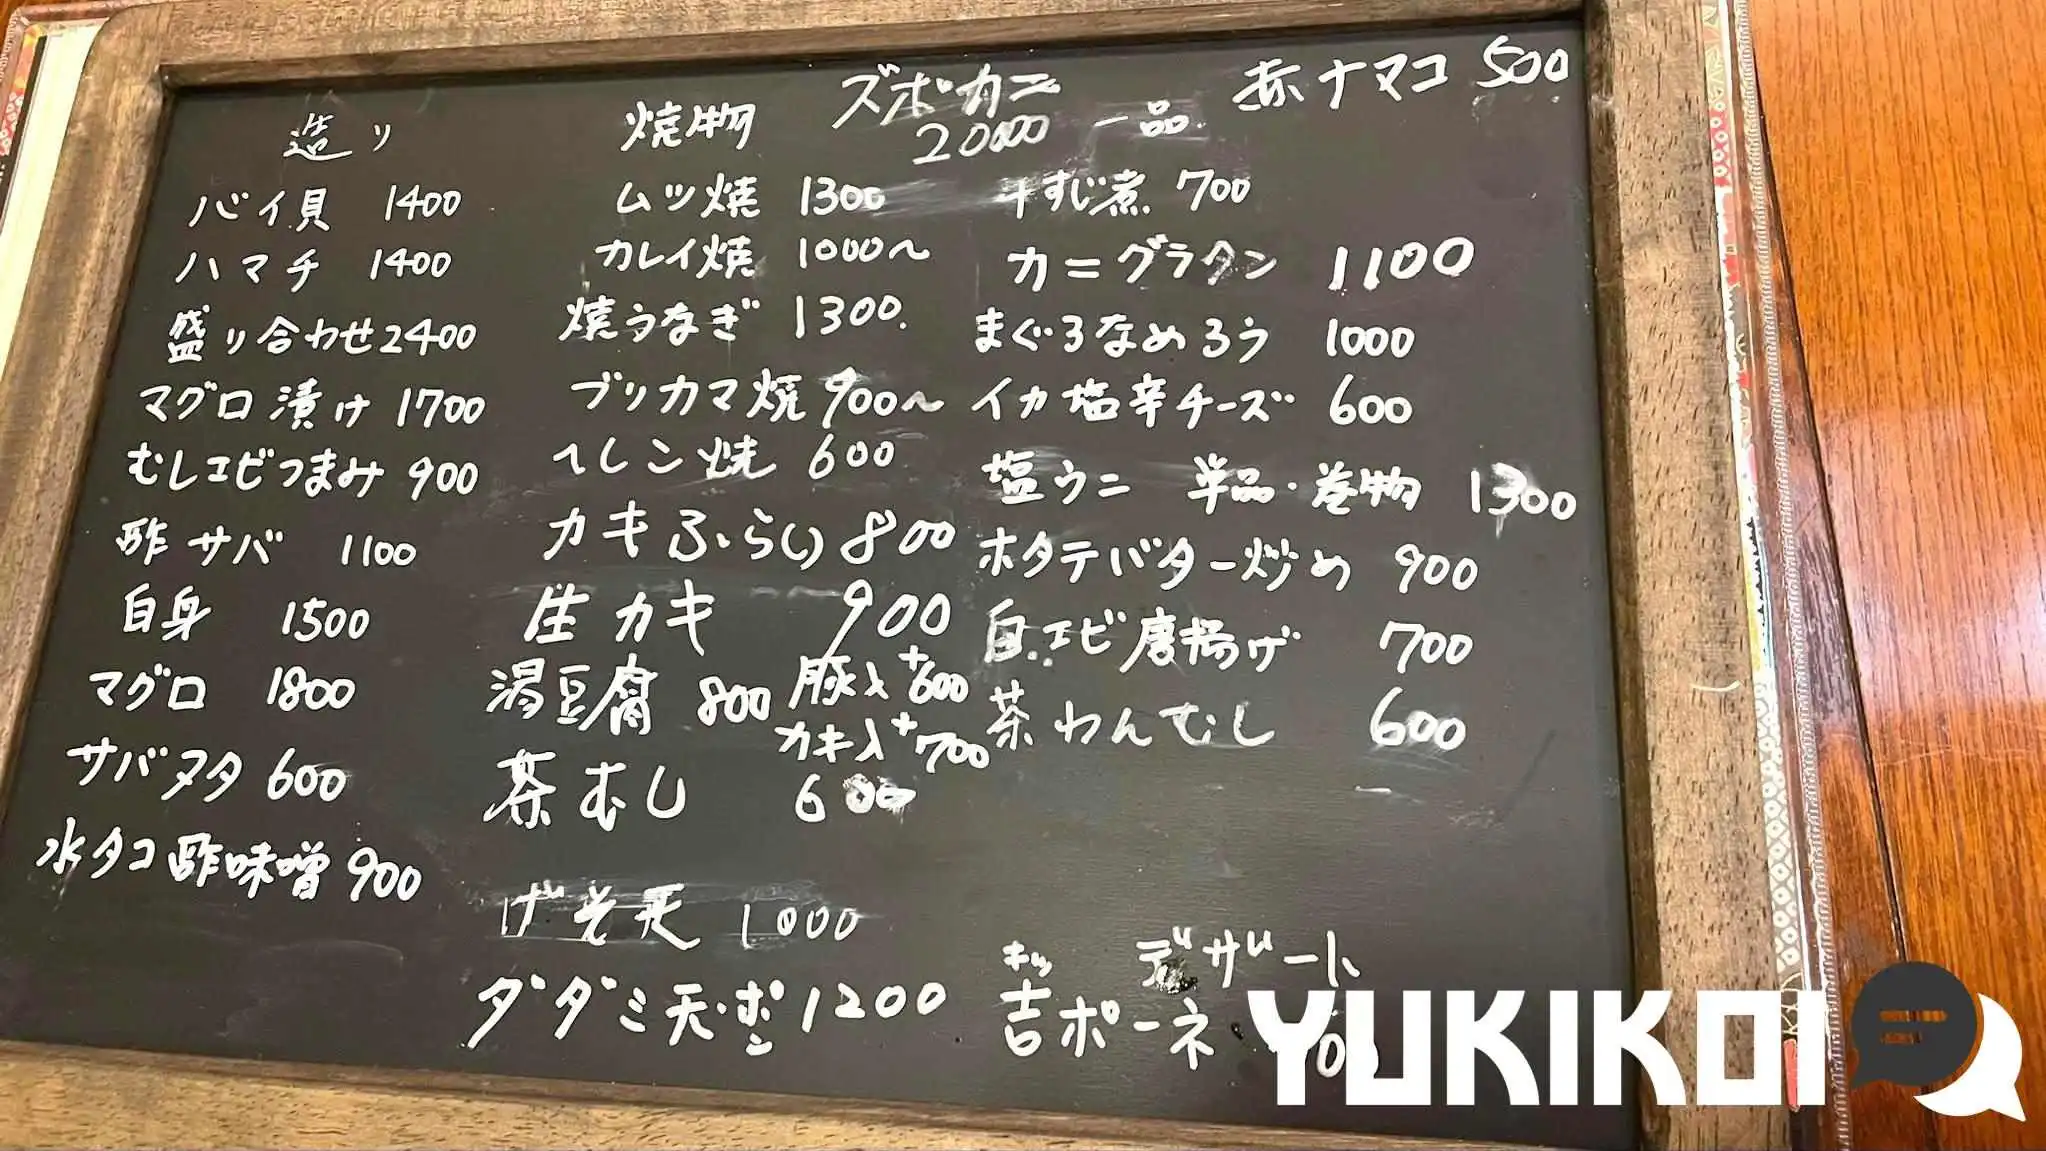 造り
バイ貝 1400
ハマチ 1400
盛り合わせ2400
マグロ漬け 1700
むしエビつまみ 900
酢サバ 1100
白身 1500
マグロ 1800
サバヌタ 600
水タコ酢味噌 900
焼物
ムツ焼 1300
カレイ焼 1000〜
焼うなぎ 1300.
ブリカマ焼 900〜
ヘレン焼 600
カキふらい 800
生カキ 900
湯豆腐 800
豚入+600
カキ入+700
茶むし 600
天 1000
ダダミ天・ポン 1200
ズボガニ
20000
一品
赤ナマコ 500
すじ煮 700
カニグラタン 1100
まぐろなめろう 1000
イカ塩辛チーズ 600
塩ウニ 単品・巻物 1300
ホタテバター炒め 900
白エビ唐揚げ 700
茶わんむし 600
デザート
キッ
吉ポーネ
YUKIKOI